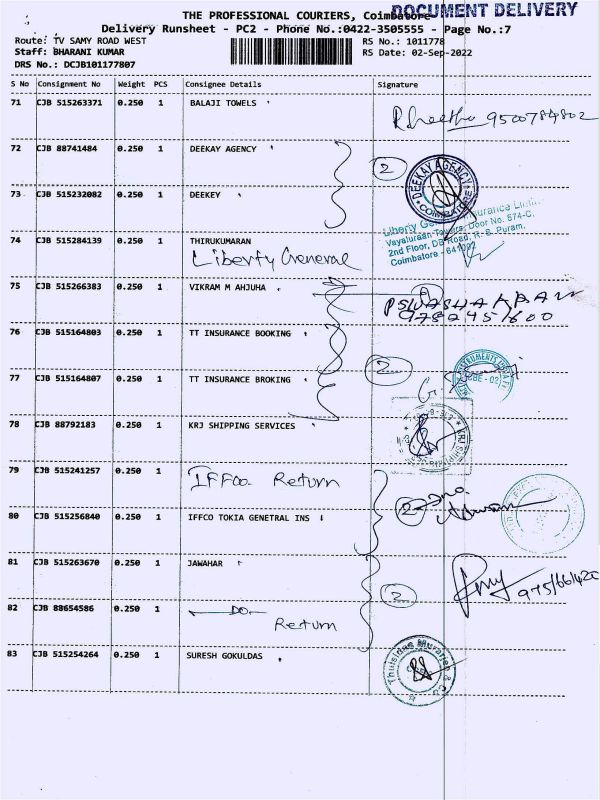 DOCUMENT DELIVERY
THE PROFESSIONAL COURIERS, Coimbatore
Delivery Runsheet - PC2 - Phone No.:0422-3505555 - Page No.:7
Route: TV SAMY ROAD WEST RS No.: 1011778
Staff: BHARANI KUMAR RS Date: 02-Sep-2022
DRS No.: DCJB101177807
S No Consignment No Weight PCS Consignee Details Signature
71 CJB 515263371 0.250 1 BALAJI TOWELS
9500784802
72 CJB 88741484 0.250 1 DEEKAY AGENCY 2
DEEKAY AGENCY COIMBATORE
73 CJB 515232082 0.250 1 DEEKEY
74 CJB 515284139 0.250 1 THIRUKUMARAN
Liberty General
Vayaluraan Towers, Door No. 574-C,
2nd Floor, DB Road, R.S. Puram,
Coimbatore - 641002
75 CJB 515266383 0.250 1 VIKRAM M AHJUHA
76 CJB 515164803 0.250 1 TT INSURANCE BOOKING
77 CJB 515164807 0.250 1 TT INSURANCE BROKING 2
78 CJB 88792183 0.250 1 KRJ SHIPPING SERVICES
79 CJB 515241257 0.250 1
IFFCO Return
80 CJB 515256840 0.250 1 IFFCO TOKIA GENETRAL INS 2
81 CJB 515263670 0.250 1 JAWAHAR
82 CJB 88654586 0.250 1 DO 2
Return
83 CJB 515254264 0.250 1 SURESH GOKULDAS